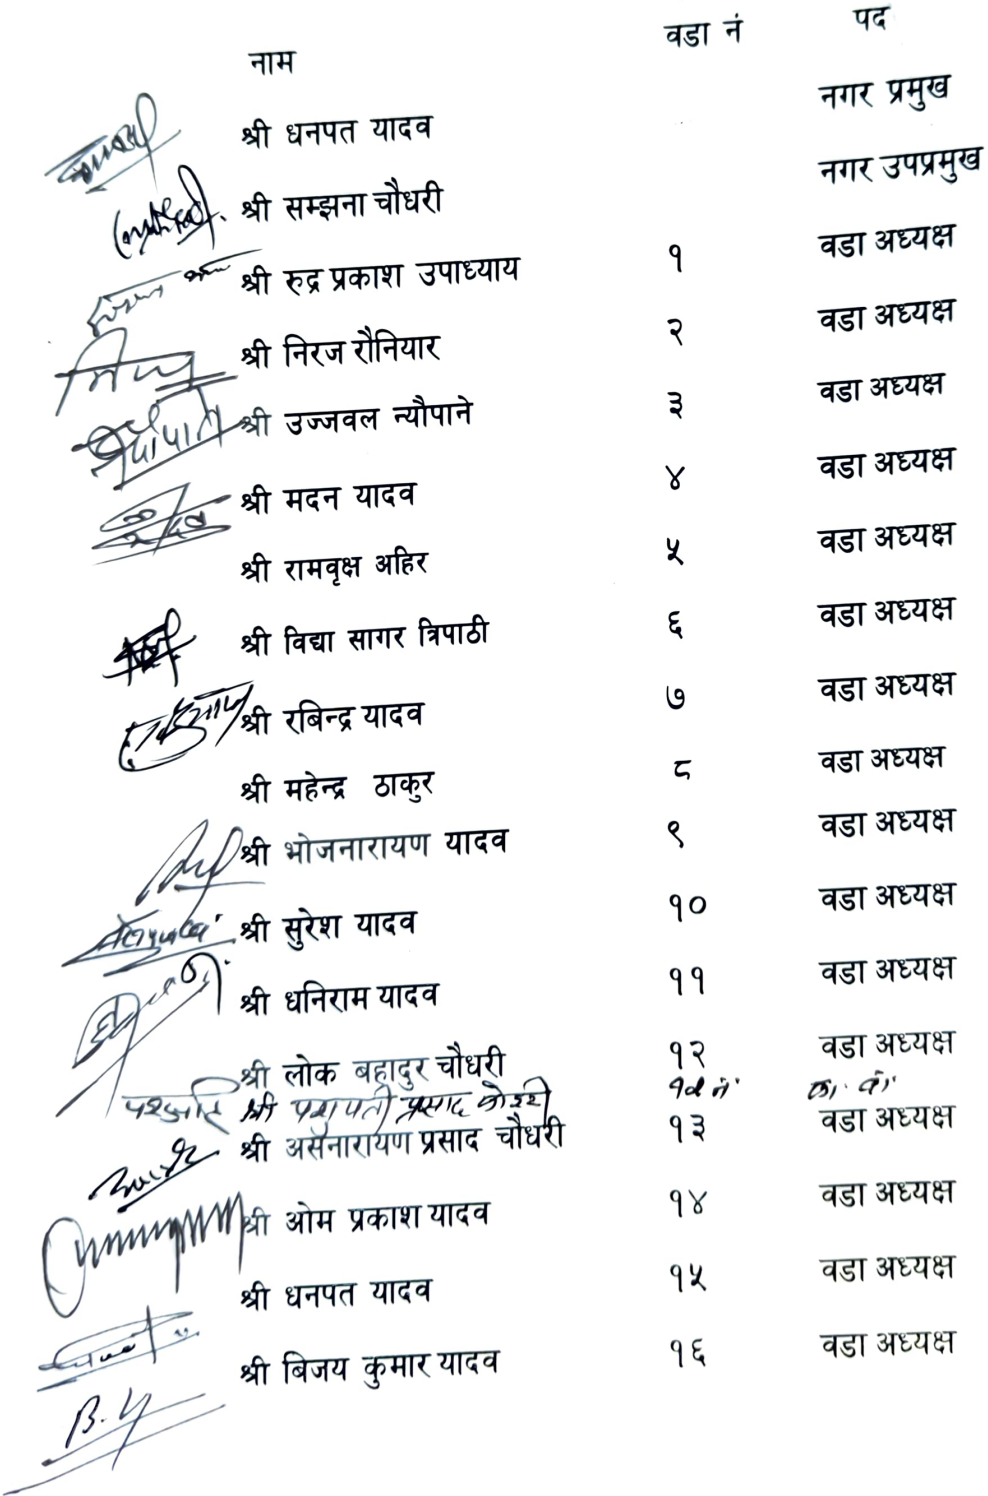 नाम वडा नं पद
श्री धनपत यादव नगर प्रमुख
श्री सम्झना चौधरी नगर उपप्रमुख
श्री रुद्र प्रकाश उपाध्याय १ वडा अध्यक्ष
श्री निरज रौनियार २ वडा अध्यक्ष
श्री उज्जवल न्यौपाने ३ वडा अध्यक्ष
श्री मदन यादव ४ वडा अध्यक्ष
श्री रामवृक्ष अहिर ५ वडा अध्यक्ष
श्री विद्या सागर त्रिपाठी ६ वडा अध्यक्ष
श्री रबिन्द्र यादव ७ वडा अध्यक्ष
श्री महेन्द्र ठाकुर ८ वडा अध्यक्ष
श्री भोजनारायण यादव ९ वडा अध्यक्ष
श्री सुरेश यादव १० वडा अध्यक्ष
श्री धनिराम यादव ११ वडा अध्यक्ष
श्री लोक बहादुर चौधरी १२ वडा अध्यक्ष
श्री पशुपती प्रसाद कोइरी १२ नं का. वा.
श्री असनारायण प्रसाद चौधरी १३ वडा अध्यक्ष
श्री ओम प्रकाश यादव १४ वडा अध्यक्ष
श्री धनपत यादव १५ वडा अध्यक्ष
श्री बिजय कुमार यादव १६ वडा अध्यक्ष
B. Y